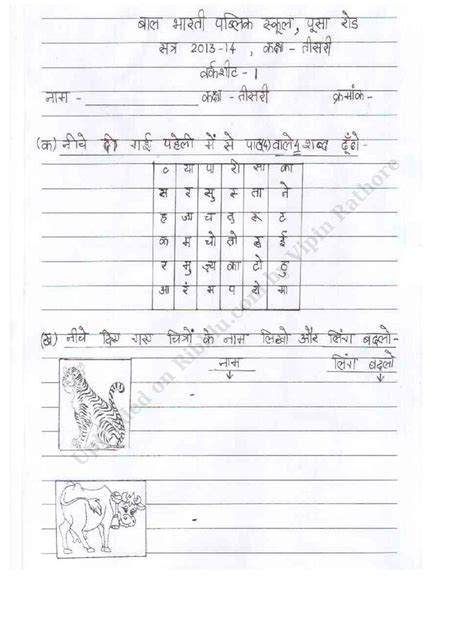 बाल भारती पब्लिक स्कूल, पूसा रोड
सत्र 2013-14 , कक्षा - तीसरी
वर्कशीट - 1
नाम - कक्षा - तीसरी क्रमांक-
(क) नीचे दी गई पहेली में से वाले शब्द ढूँढो-
व्या पा री सा का
स र सु म ता ने
ह च तु ट
क म चो तो ई
र मु का टो
आ रं भ प रो मा
(ख) नीचे दिए गए चित्रों के नाम लिखो और लिंग बदलो-
नाम लिंग बदलो
Uploaded on Ribblu.com by Vipin Rathore